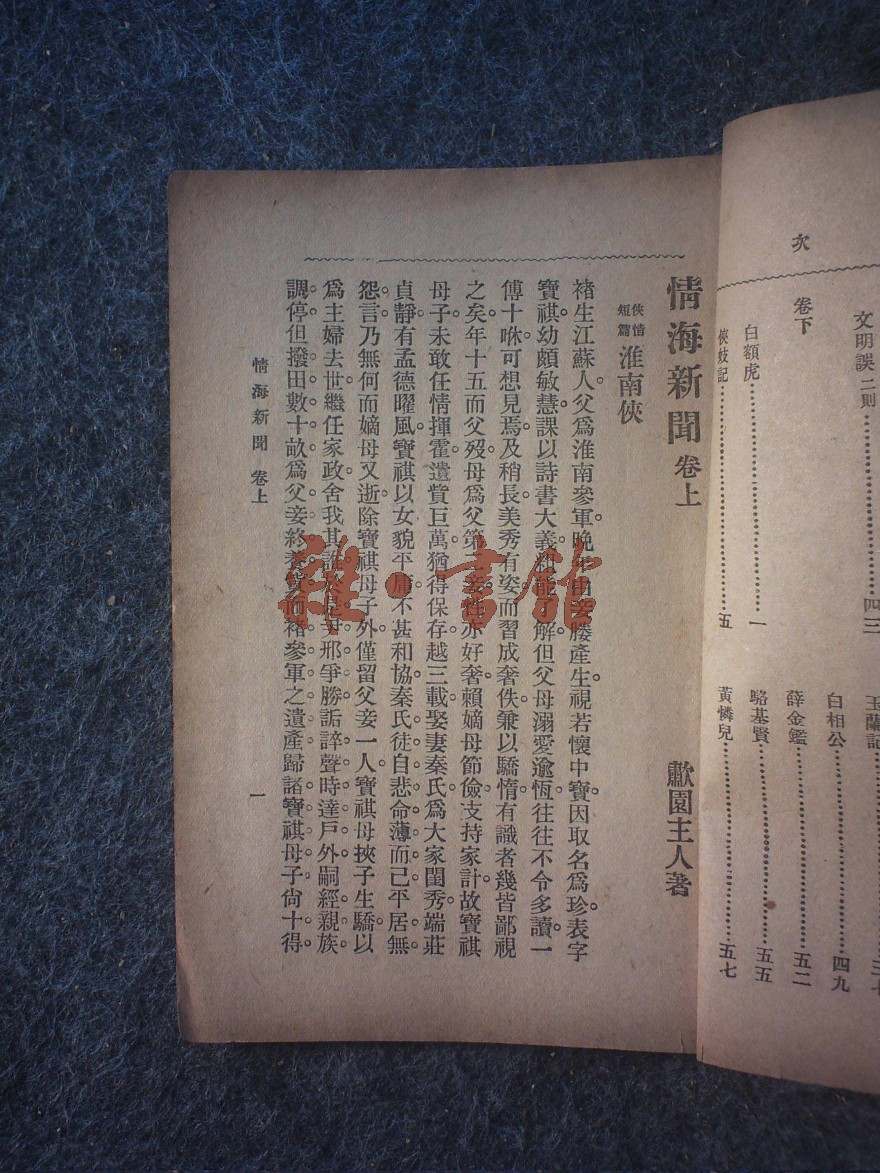 次
文明誤 二則……四三
卷下
白額虎……一
俠妓記……五
玉蘭記
白相公……四九
薛金鑑……五二
駱基賢……五五
黃憐兒……五七
情海新聞 卷上
歗園主人著
俠情短篇 淮南俠
褚生江蘇人。父爲淮南參軍。晚年由妾媵產生。視若懷中寶。因取名爲珍。表字
寶祺。幼頗敏慧。課以詩書大義。粗能了解。但父母溺愛逾恆。往往不令多讀。一
傅十咻。可想見焉。及稍長。美秀有姿。而習成奢佚。兼以驕惰。有識者幾皆鄙視
之矣。年十五而父歿。母爲父第二妾。性亦好奢。賴嫡母節儉。支持家計。故寶祺
母子。未敢任情揮霍。遺貲巨萬。猶得保存。越三載。娶妻秦氏。爲大家閨秀。端莊
貞靜。有孟德曜風。寶祺以女貌平庸。不甚和協。秦氏徒自悲命薄而已。平居無
怨言。乃無何而嫡母又逝。除寶祺母子外。僅留父妾一人。寶祺母挾子生驕。以
爲主婦去世。繼任家政。舍我其誰。於是
爭勝。詬誶聲時達戶外。嗣經親族
調停。但撥田數十畝。爲父妾終養
而褚參軍之遺產。歸諸寶祺母子。尙十得
情海新聞 卷上
一
雜·書館